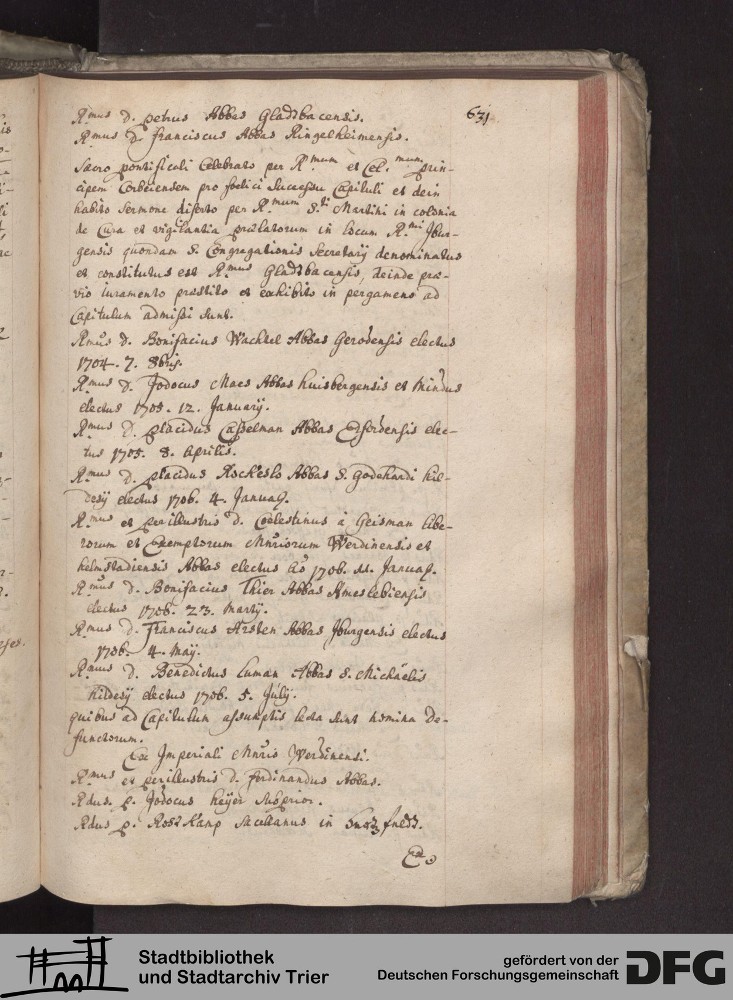 631
R.mus D. Petrus Abbas Gladbacensis.
R.mus D. Franciscus Abbas Ringelheimensis.
Sacro pontificali Celebrato per R.mum et Cel.mum prin-
cipem Corbeiensem pro foelici successu Capituli et dein
habito sermone diserto per R.mum S.ti Martini in colonia
de Cura et vigilantia praelatorum in locum R.mi Jbur-
gensis quondam S. Congregationis Secretarij denominatus
et constitutus est R.mus Gladbacensis, deinde prae-
vio iuramento praestito et exhibito in pergameno ad
Capitulum admissi sunt.
R.mus D. Bonifacius Wachtel Abbas Gerodensis electus
1704. 7. 8bris.
R.mus D. Jodocus Maes Abbas huisbergensis et Mindus
electus 1705. 12. January.
R.mus D. Placidus Casselman Abbas Erfordensis elec-
tus 1705. 8. Aprilis.
R.mus D. Placidus Abbas S. Godehardi hil-
desij electus 1706. 4. Januar.
R.mus et perillustris D. Coelestinus à Geisman libe-
rorum et Exemptorum Mnriorum Werdinensis et
helmstadiensis Abbas electus Aô 1706. 11. Januar.
R.mus D. Bonifacius Thier Abbas Ameslebiensis
electus 1706. 23. Martij.
R.mus D. Franciscus Arsten Abbas Jburgensis electus
1706. 4. Maij.
R.mus D. Benedictus Luman Abbas S. Michaëlis
hildesij electus 1706. 5. Julij.
quibus ad Capitulum assumptis lecta sunt nomina De-
functorum.
Ex Imperiali Mnrio Werdinensi.
R.mus et perillustris D. Ferdinandus Abbas.
Rdus. P. Jodocus heyer Subprior.
Rdus P. Rosskamp Sacellanus in
Ex
Stadtbibliothek
und Stadtarchiv Trier
gefördert von der
Deutschen Forschungsgemeinschaft
DFG